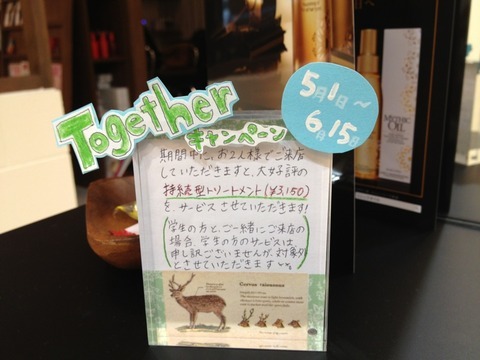 Together
キャンペーン
5月1日～
6月15日
期間中に、お2人様でご来店
していただきますと、大好評の
持続型トリートメント(¥3,150)
を、サービスさせていただきます!
(学生の方と、ご一緒にご来店の
場合、学生の方のサービスは、
申し訳ございませんが、対象外
とさせていただきます)
MYTHIC
OIL